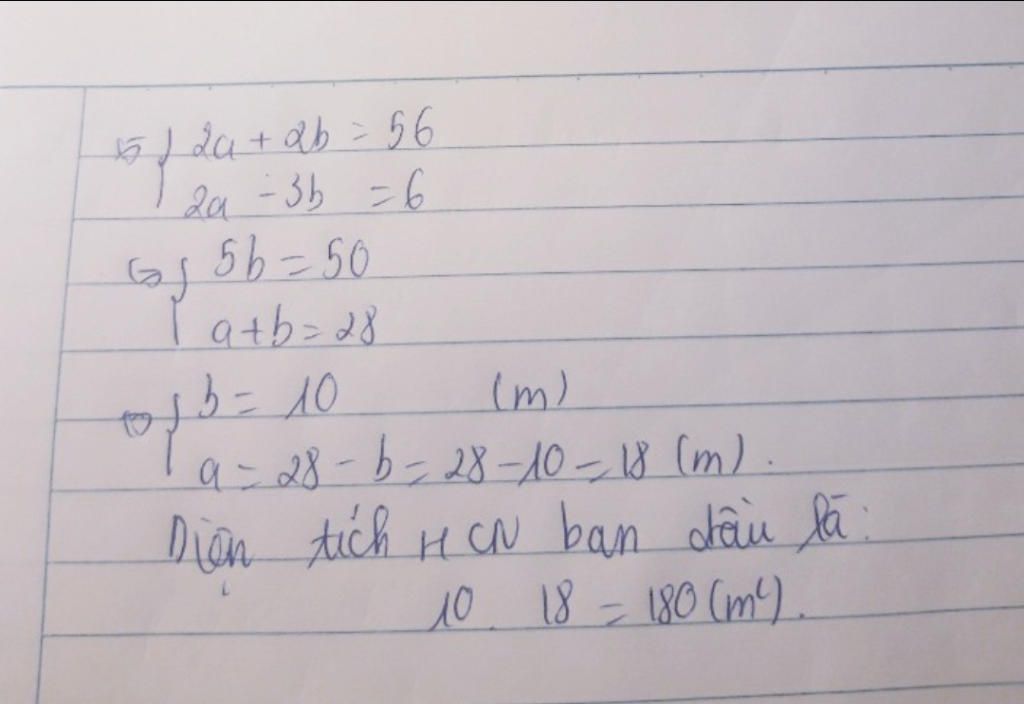 ⇔ { 2a + 2b = 56
2a - 3b = 6
⇔ { 5b = 50
a + b = 28
⇔ { b = 10 (m)
a = 28 - b = 28 - 10 = 18 (m).
Diện tích HCN ban đầu là:
10 . 18 = 180 (m²).